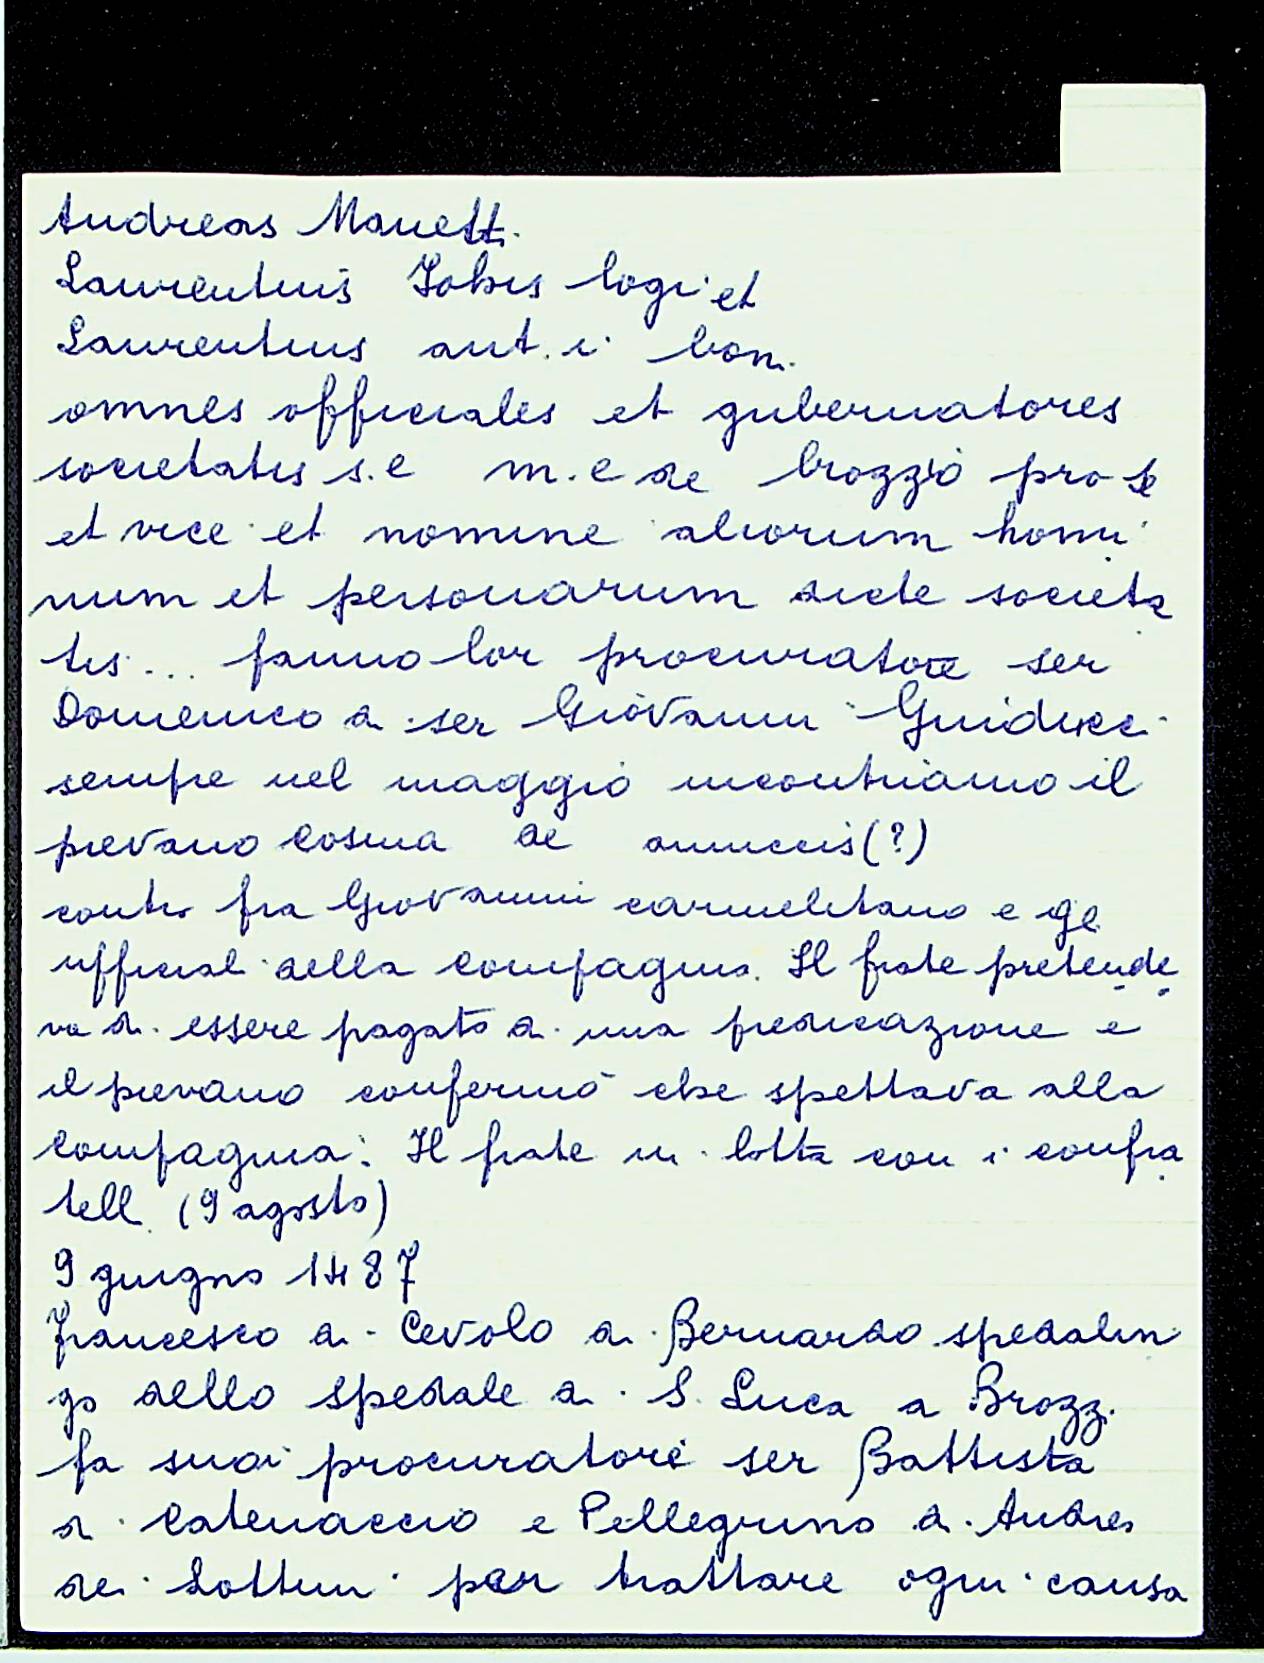 Andreas Manetti
Laurentius Johis logi et
Laurentius ant. i. bon.
omnes officiales et gubernatores
societatis s.e m.e de brozzi pro se
et vice et nomine aliorum homi
num et personarum dicte societa
tis... fanno lor procuratore ser
Domenico di ser Giovanni Guiducci
sempre nel maggio incontriamo il
pievano Cosma de annuccis (?)
contro fra Giovanni carmelitano e gl
ufficiali della compagnia. Il frate pretende
va di essere pagato di una predicazione e
il pievano confermò che spettava alla
Compagnia. Il frate in lotta con i confra
telli (9 agosto)
9 giugno 1487
Francesco di Cevolo di Bernardo spedalin
go dello spedale di S. Luca a Brozzi
fa suoi procuratori ser Battista
di Catenaccio e Pellegrino di Andrea
dei Lottini per trattare ogni causa